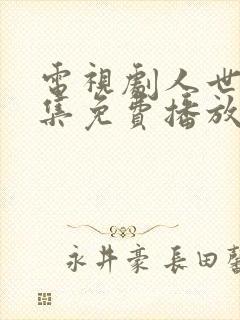 電視劇人世
集免費播放
永井豪 長田馨